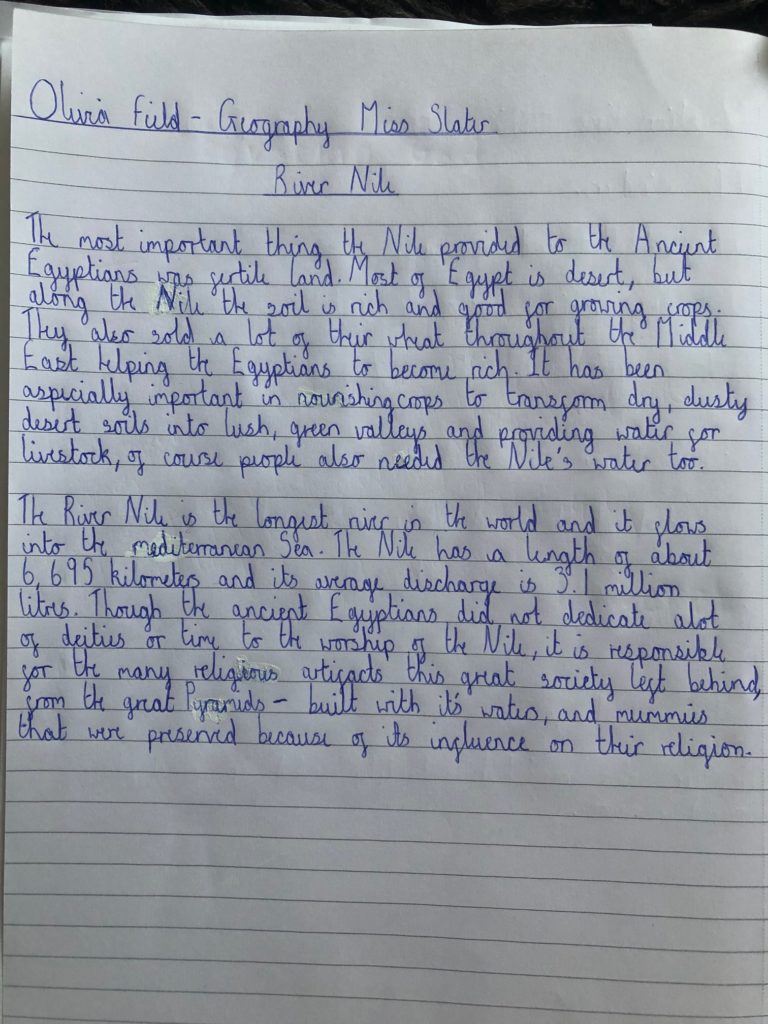 Olivia Field - Geography Miss Slater
River Nile
The most important thing the Nile provided to the Ancient
Egyptians was fertile land. Most of Egypt is desert, but
along the Nile the soil is rich and good for growing crops.
They also sold a lot of their wheat throughout the Middle
East helping the Egyptians to become rich. It has been
aspecially important in nourishing crops to transform dry, dusty
desert soils into lush, green valleys and providing water for
livestock, of course people also needed the Nile's water too.
The River Nile is the longest river in the world and it flows
into the mediterranean Sea. The Nile has a length of about
6,695 kilometers and its average discharge is 3.1 million
litres. Though the ancient Egyptians did not dedicate alot
of deities or time to the worship of the Nile, it is responsible
for the many religious artifacts this great society left behind,
from the great Pyramids - built with it's water, and mummies
that were preserved because of its influence on their religion.